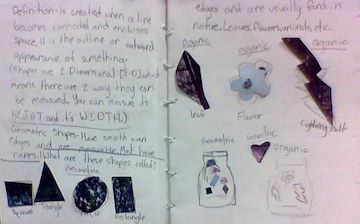 Definition: is created when a line
becomes connected and encloses
space. It is the outline or outward
appearance of something.
(Shapes are 2 Dimensional [2-D] which
means there are 2 way they can
be measured. You can measure its
HEIGT and its WIDTH.)
Geometric Shapes- Have smooth even
edges and are measurable. Most have
names. (What are these shapes called?
Geometric
Square
Triangle
Circle
Rectangle
edges and are usually found in
nature. Leaves, Flowers, animals, etc.
Organic
organic
organic
Leaf
Flower
Lightning bolt
Geometric
Geometric
organic